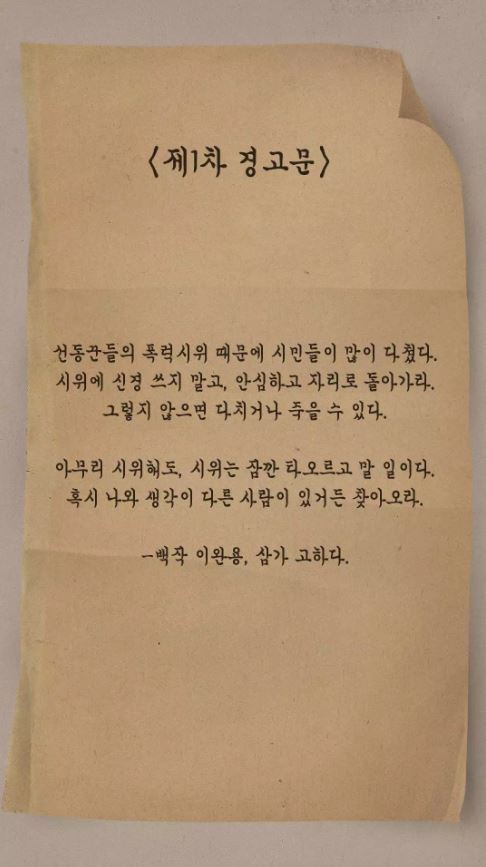 〈제1차 경고문〉
선동꾼들의 폭력시위 때문에 시민들이 많이 다쳤다.
시위에 신경 쓰지 말고, 안심하고 자리로 돌아가라.
그렇지 않으면 다치거나 죽을 수 있다.
아무리 시위해도, 시위는 잠깐 타오르고 말 일이다.
혹시 나와 생각이 다른 사람이 있거든 찾아오라.
-백작 이완용, 삼가 고하다.